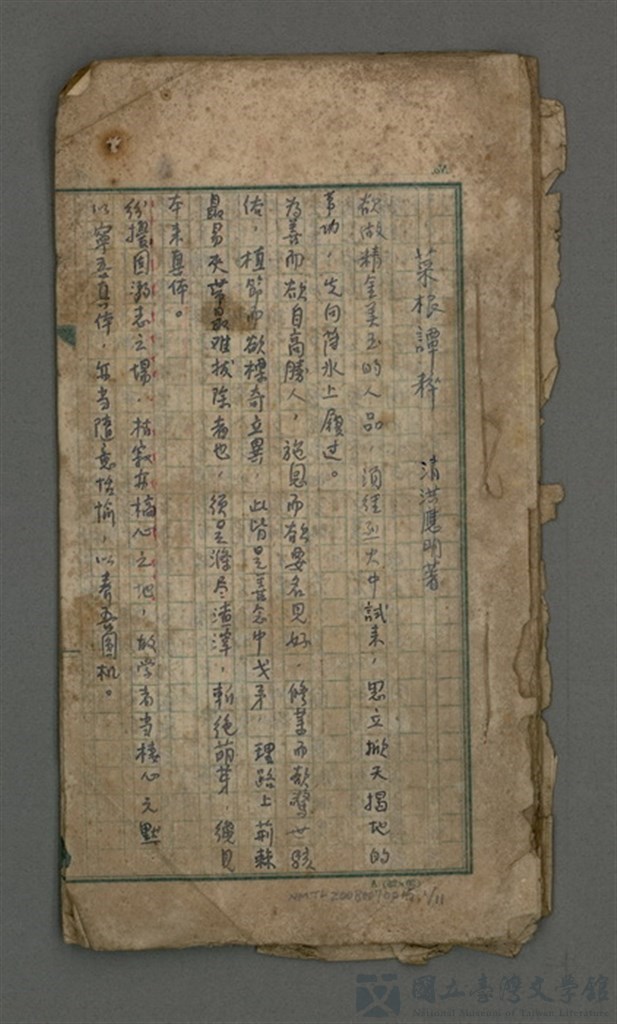 菜根譚 清洪應明著
欲做精金美玉的人品,須經烈火中試来,思立掀天揭地的
事功,先向薄冰上履过。
為善而欲自高勝人,施恩而欲要名見好,修業而欲驚世駭
俗,植節而欲標奇立異,此皆是善念中戈矛,理路上荊棘
最易夾帶最难拔除者也,須是滌尽渣滓,斬絕萌芽,纔見
本来真体。
紛擾固溺志之場,枯寂亦槁心之地,故学者当棲心元默
以寧吾真体,亦当隨意恬愉,以养吾圓机。
國立臺灣文學館
National Museum of Taiwan Literature